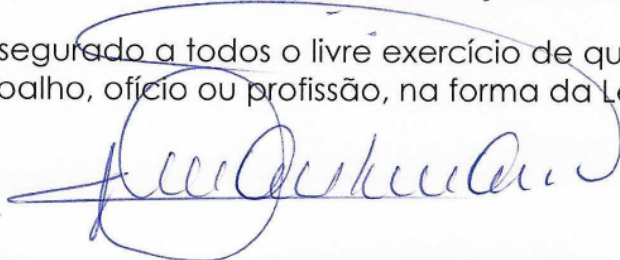 segurado a todos o livre exercício de qu
balho, ofício ou profissão, na forma da Le